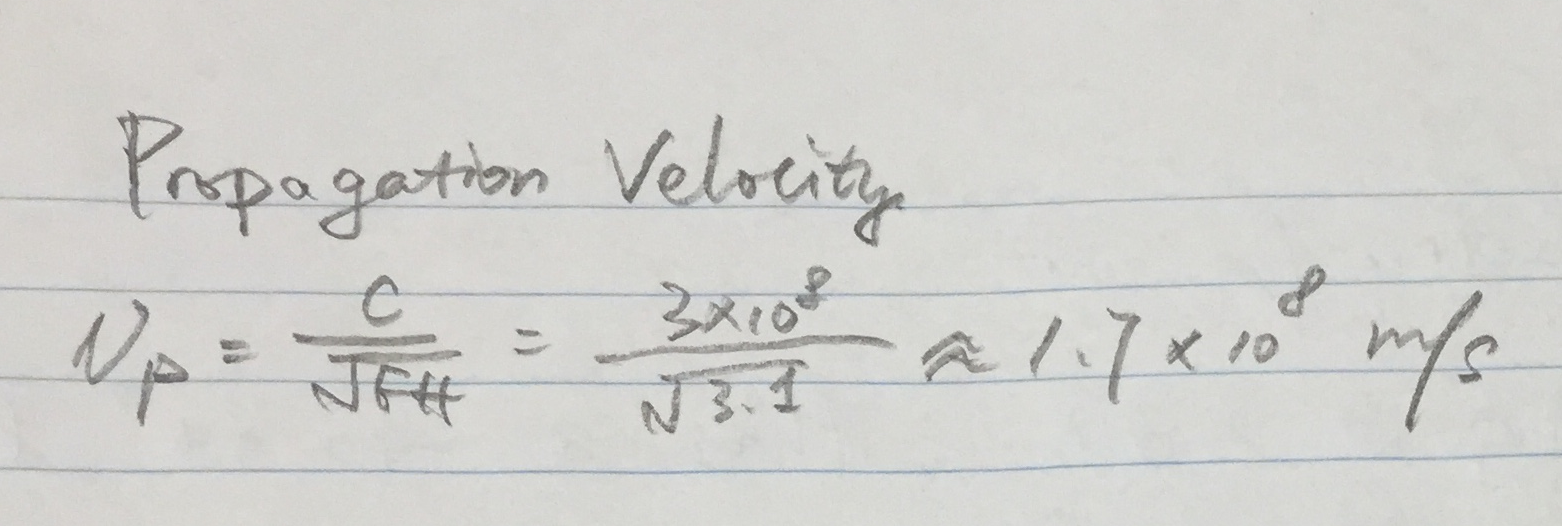 Propagation Velocity
Vp = C/√εeff = 3×10⁸/√3.1 ≈ 1.7 × 10⁸ m/s